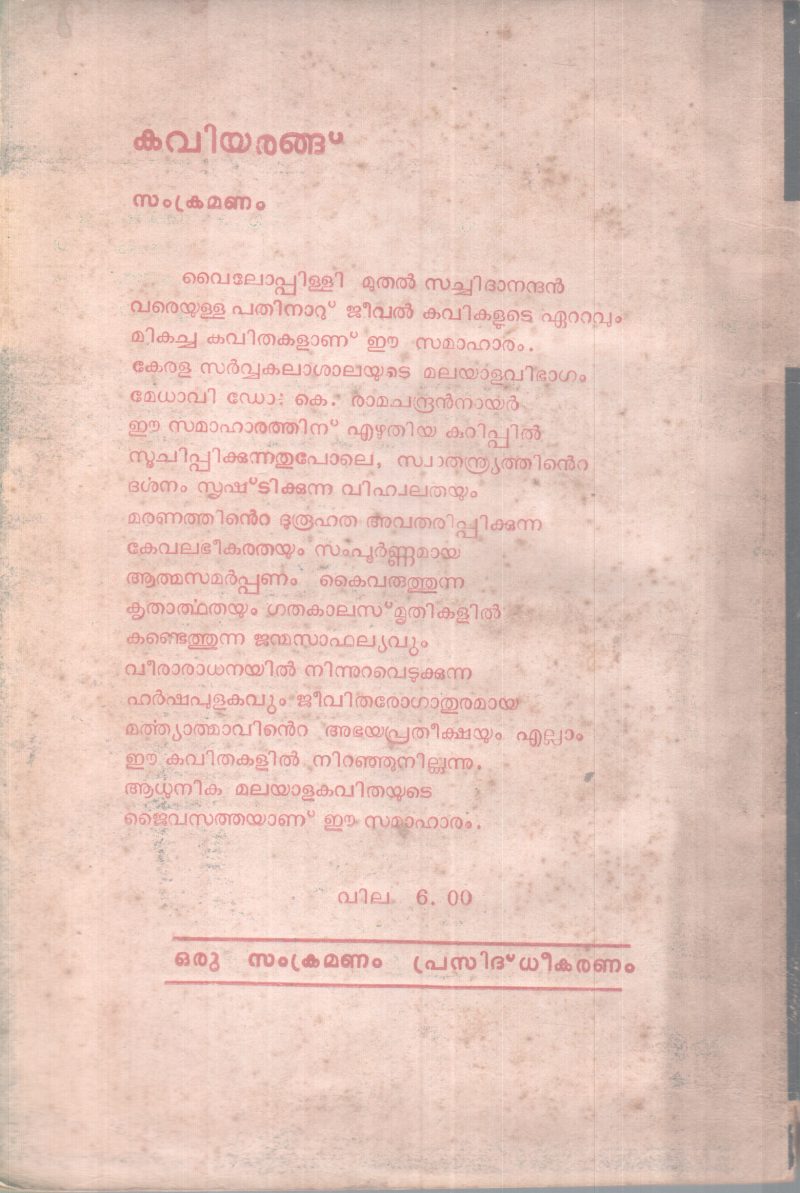 കവിയരങ്ങ്
സംക്രമണം
വൈലോപ്പിള്ളി മുതൽ സച്ചിദാനന്ദൻ
വരെയുള്ള പതിനാറു് ജീവൽ കവികളുടെ ഏററവും
മികച്ച കവിതകളാണ് ഈ സമാഹാരം.
കേരള സർവ്വകലാശാലയുടെ മലയാളവിഭാഗം
മേധാവി ഡോ: കെ. രാമചന്ദ്രൻനായർ
ഈ സമാഹാരത്തിന് എഴുതിയ കുറിപ്പിൽ
സൂചിപ്പിക്കുന്നതുപോലെ, സ്വാതന്ത്ര്യത്തിൻെറ
ദർശനം സൃഷ്ടിക്കുന്ന വിഹ്വലതയും
മരണത്തിൻെറ ദുരൂഹത അവതരിപ്പിക്കുന്ന
കേവലഭീകരതയും സംപൂർണ്ണമായ
ആത്മസമർപ്പണം കൈവരുത്തുന്ന
കൃതാർത്ഥതയും ഗതകാലസ്മൃതികളിൽ
കണ്ടെത്തുന്ന ജന്മസാഫല്യവും
വീരാരാധനയിൽ നിന്നുറവെടുക്കുന്ന
ഹർഷപുളകവും ജീവിതരോഗാതുരമായ
മർത്ത്യാത്മാവിൻെറ അഭയപ്രതീക്ഷയും എല്ലാം
ഈ കവിതകളിൽ നിറഞ്ഞുനില്ക്കുന്നു.
ആധുനിക മലയാളകവിതയുടെ
ജൈവസത്തയാണ് ഈ സമാഹാരം.
വില 6.00
ഒരു സംക്രമണം പ്രസിദ്ധീകരണം